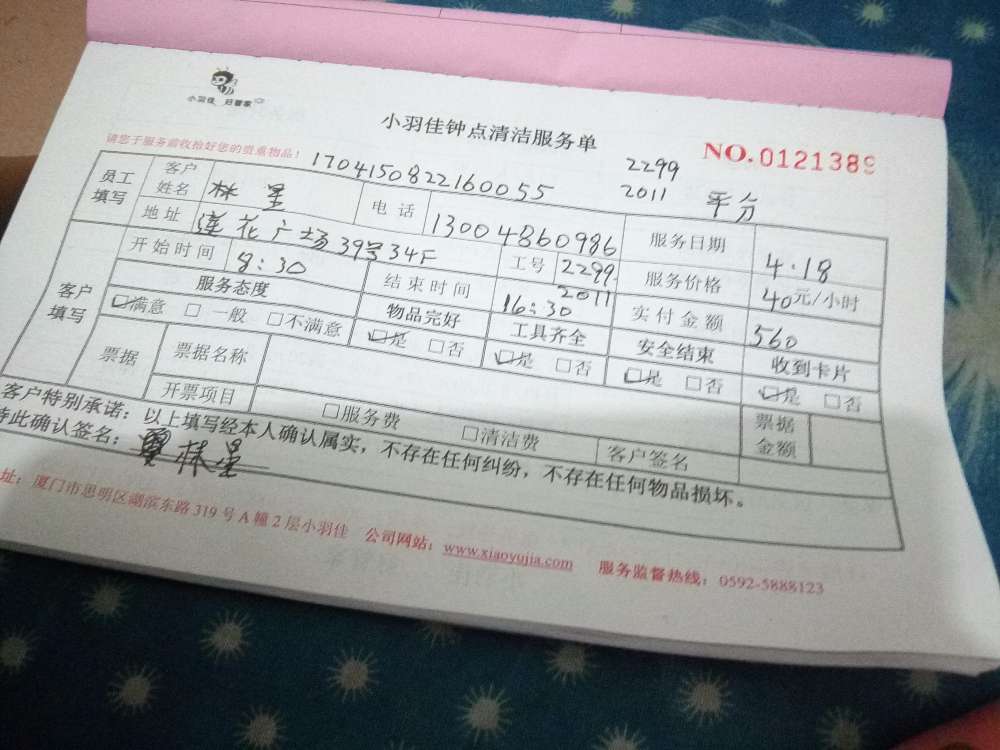 小羽佳 好管家
小羽佳钟点清洁服务单
NO.0121389
请您于服务前收拾好您的贵重物品!
1704150822160055
2299
2011 平分
员工填写 客户姓名 林星 电话 13004860986 服务日期 4.18
地址 莲花广场39号34F 工号 2299 2011 服务价格 40元/小时
客户填写 开始时间 8:30 结束时间 16:30 实付金额 560
服务态度 物品完好 工具齐全 安全结束 收到卡片
☑满意 □一般 □不满意 ☑是 □否 ☑是 □否 ☑是 □否 ☑是 □否
票据 票据名称 票据金额
开票项目 □服务费 □清洁费 客户签名
客户特别承诺:以上填写经本人确认属实,不存在任何纠纷,不存在任何物品损坏。
特此确认签名: 林星
址:厦门市思明区湖滨东路319号A幢2层小羽佳 公司网站:www.xiaoyujia.com 服务监督热线:0592-5888123